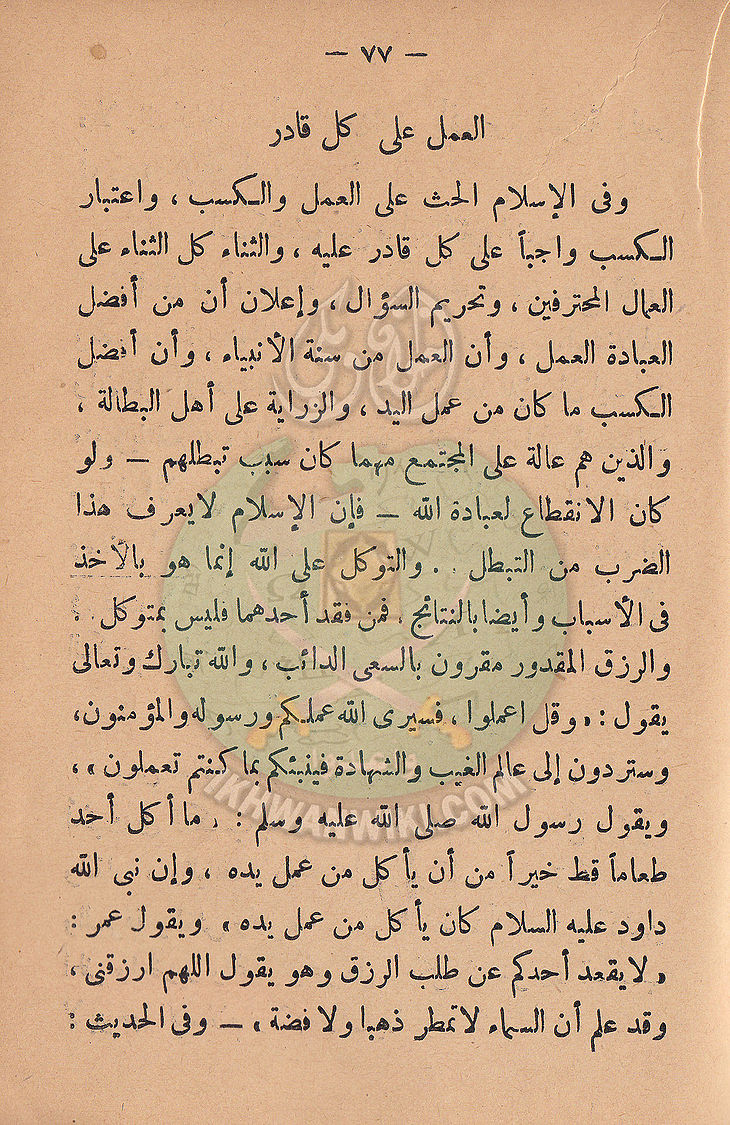 — ٧٧ —
العمل على كل قادر
وفى الإسلام الحث على العمل والكسب ، واعتبار
الكسب واجباً على كل قادر عليه ، والثناء كل الثناء على
العمال المحترفين ، وتحريم السؤال ، وإعلان أن من أفضل
العبادة العمل ، وأن العمل من سنة الأنبياء ، وأن أفضل
الكسب ما كان من عمل اليد ، والزراية على أهل البطالة ،
والذين هم عالة على المجتمع مهما كان سبب تبطلهم — ولو
كان الانقطاع لعبادة الله — فإن الإسلام لايعرف هذا
الضرب من التبطل . . والتوكل على الله إنما هو بالأخذ
فى الأسباب وأيضا بالنتائج . فمن فقد أحدهما فليس بمتوكل .
والرزق المقدور مقرون بالسعى الدائب ، والله تبارك وتعالى
يقول : « وقل اعملوا ، فسيرى الله عملكم ورسوله والمؤمنون،
وستردون إلى عالم الغيب والشهادة فينبئكم بما كنتم تعملون » ،
ويقول رسول الله صلى الله عليه وسلم : « ما أكل أحد
طعاماً قط خيراً من أن يأكل من عمل يده ، وإن نبى الله
داود عليه السلام كان يأكل من عمل يده » ويقول عمر :
« لايقعد أحدكم عن طلب الرزق وهو يقول اللهم ارزقنى ،
وقد علم أن السماء لاتمطر ذهبا ولا فضة » — وفى الحديث :
IKHWANWIKI.COM